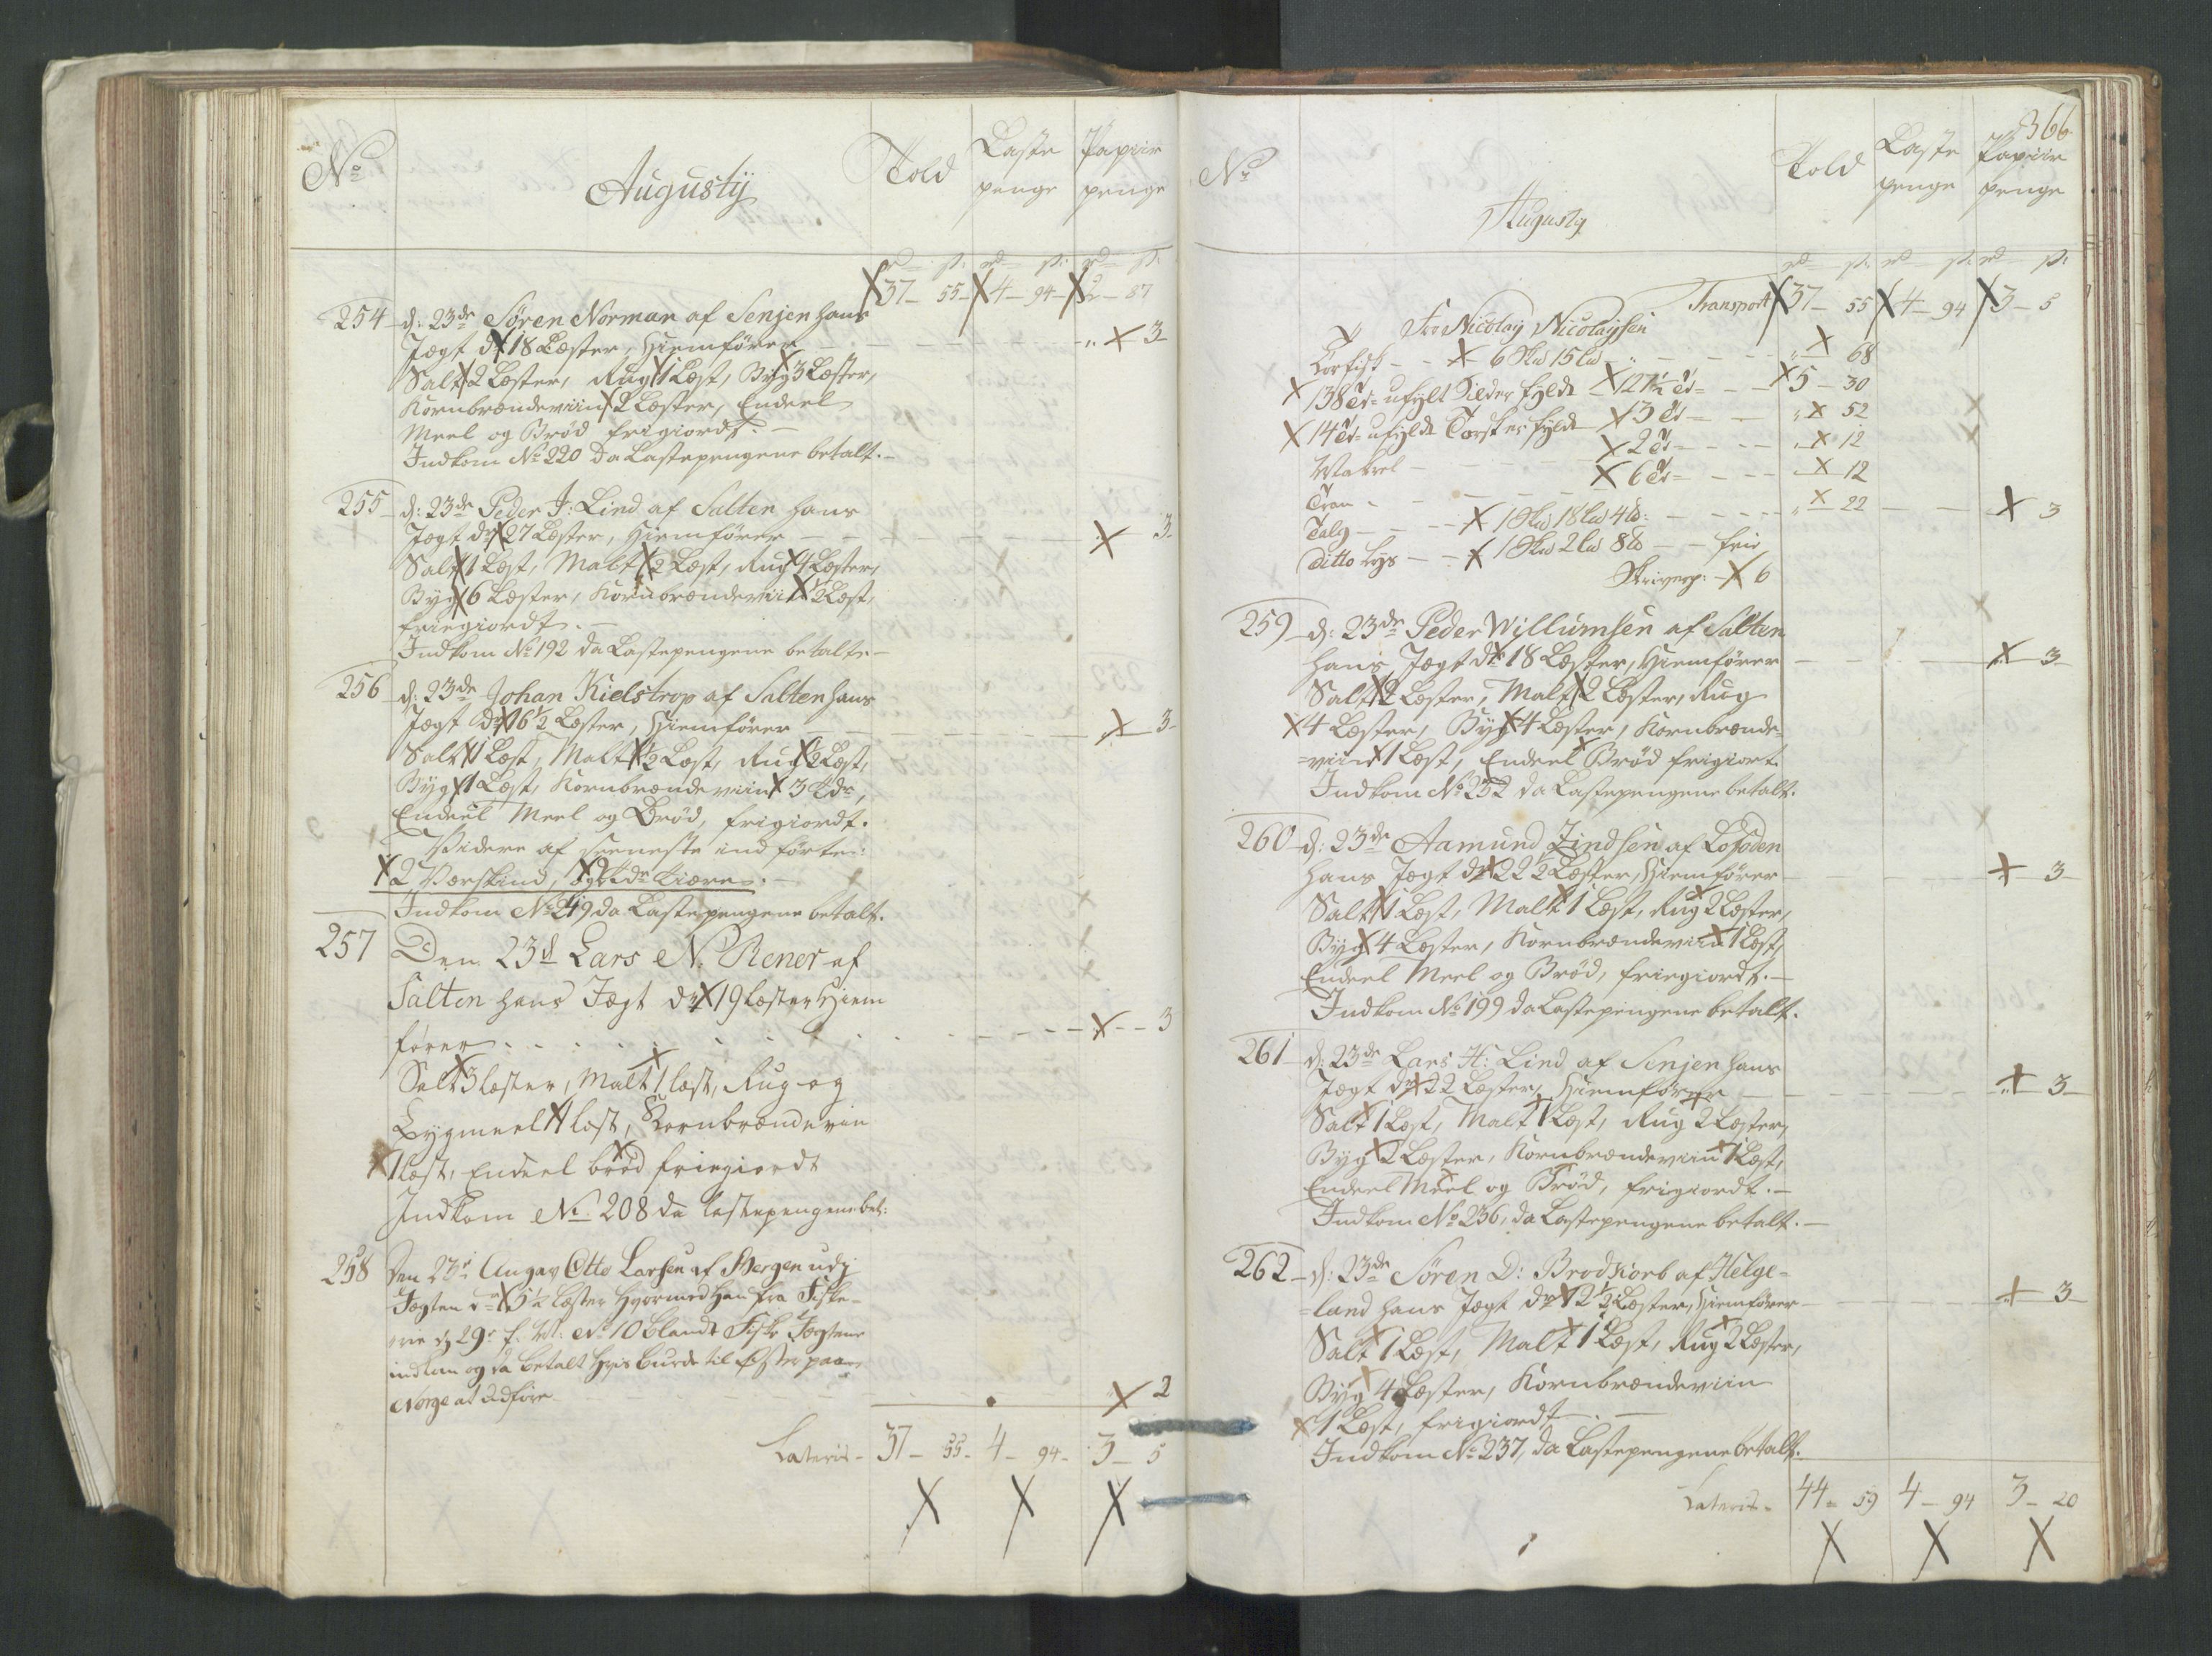 No
Augustij
Told
Laste
penge
Papiir
penge
rd s: rd s: rd s:
37 - 55 - 4 - 94 - 2 - 87
254 d: 23de Søren Norman af Senjen hans
Jægt dr. 18 Læster, Hiemfører - - - " 3
Salt 2 Læster, Rug 1 Læst, Byg 3 Læster,
Kornbrændeviin 2 Læster, Endeel
Meel og Brød frigiordt. -
Indkom No 220 da Lastepengene betalt. -
255 d: 23de Peder J: Lind af Salten hans
Jægt dr. 27 Læster, Hiemfører - - - 3
Salt 1 Læst, Malt 2 Læst, Rug 4 Læster,
Byg 6 Læster, Kornbrændeviin 1/2 Læst,
friegiordt. -
Indkom No 192 da Lastepengene betalt. -
256 d: 23de Johan Kielstrop af Salten hans
Jægt dr. 16 1/2 Læster, Hiemfører - - - 3
Salt 1 Læst, Malt 1/2 Læst, Rug 1/2 Læst,
Byg 1 Læst, Kornbrændeviin 3 Tdr,
Endeel Meel og Brød, frigiordt.
Videre af seeneste indførte:
2 Værskind, og Tdr Tiære. -
Indkom No 219 da Lastepengene betalt.
257 Den 23d Lars N. Rener af
Salten hans Jægt dr 19 læster Hiem
fører - - - 3
Salt 3 læster, Malt 1 læst, Rug og
Bygmeel 4 læst, Kornbrændeviin
1 læst, Endeel brød friegiordt
Indkom No 208 da lastepengene bet:
258 Den 23de Angav Otto Larsen af Bergen udj
Jægten dr 5 1/2 læster hvormed han fra Fiske-
rie d 29e f. M: No 10 blandt Fiske Jægterne
indkom og da betalt hvis burde til Øster paa
Norge at udføre - - - 2
Lateris - 37 - 55 - 4 - 94 - 3 - 5
366
No
Augusty
Told
Laste
penge
Papiir
penge
rd s: rd s: rd s:
Transport 37 - 55 4 - 94 3 - 5
For Nicolay Nicolaysen
Tørfisk - - 6 Sk℔ 15 L℔ - - - " 68
138 Tdr ufylt Silder fyldt 127 1/2 Tdr - - 5 - 30
14 Tdr ufyldt Torsk er fyldt 3 Tdr - - " 52
Makrel - - - 2 Tdr - - - " 12
Tran - - - 6 Tdr - - - 12
Talg - - - 1 Sk℔ 18 L℔ 4 ℔: - - - " 22 - - 3
ditto Lys - - 1 Sk℔ 2 L℔ 8 ℔ - - frie
Skriverp: - 6
259 d: 23de Peder Willumsen af Salten
hans Jægt dr 18 Læster, Hiemfører - - - 3
Salt 2 Læster, Malt 2 Læster, Rug
4 Læster, Byg 4 Læster, Kornbrænde-
=viin 1 Læst, Endeel Brød frigiort.
Indkom No 252 da Lastepengene betalt.
260 d: 23de Aamund Zindsen af Lofoden
hans Jægt dr 22 1/2 Læster, Hiemfører - - - 3
Salt 1 Læst, Malt 1 Læst, Rug 2 Læster,
Byg 4 Læster, Kornbrændeviin 1 Læst,
Endeel Meel og Brød, friegiordt. -
Indkom No 199 da Lastepengene betalt.
261 d: 23de Lars H: Lind af Senjen hans
Jægt dr 22 Læster, Hiemfører - - - " 3
Salt 1 Læst, Malt 1 Læst, Rug 2 Læster,
Byg 2 Læster, Kornbrændeviin 1 Læst,
Endeel Meel og Brød, frigiordt. -
Indkom No 236, da Lastepengene betalt. -
262 d: 23de Søren D: Brodkorb af Helge-
=land hans Jægt dr 12 1/2 Læster, Hiemfører - - - 3
Salt 1 Læst, Malt 1 Læst, Rug 2 Læster,
Byg 4 Læster, Kornbrændeviin
1 Læst, frigiordt. -
Indkom No 237, da Lastepengene betalt.
Lateris - 44 - 59 4 - 94 3 - 20